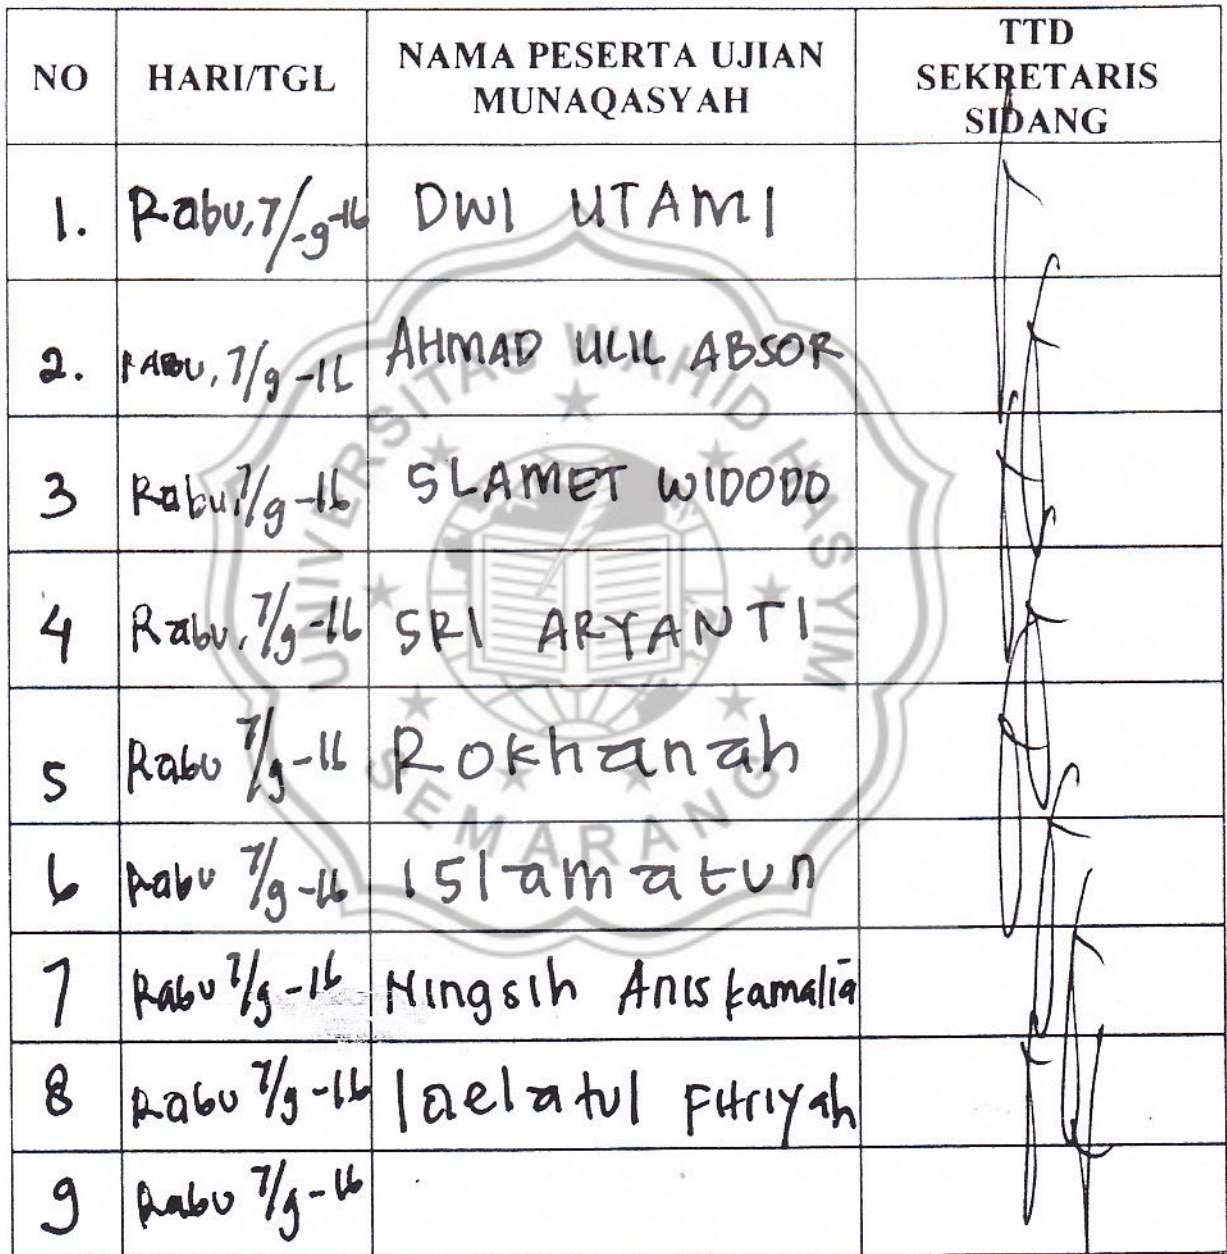 NO HARI/TGL NAMA PESERTA UJIAN MUNAQASYAH TTD SEKRETARIS SIDANG
1. Rabu, 7/-9-16 DWI UTAMI
2. RABU, 7/9-16 AHMAD ULIL ABSOR
3 Rabu, 7/9-16 SLAMET WIDODO
4 Rabu, 7/9-16 SRI ARYANTI
5 Rabu 7/9-16 Rokhanah
6 Rabu 7/9-16 Islamatun
7 Rabu 7/9-16 Ningsih Anis kamalia
8 Rabu 7/9-16 laelatul Fitriyah
9 Rabu 7/9-16
UNIVERSITAS WAHID HASYIM
SEMARANG